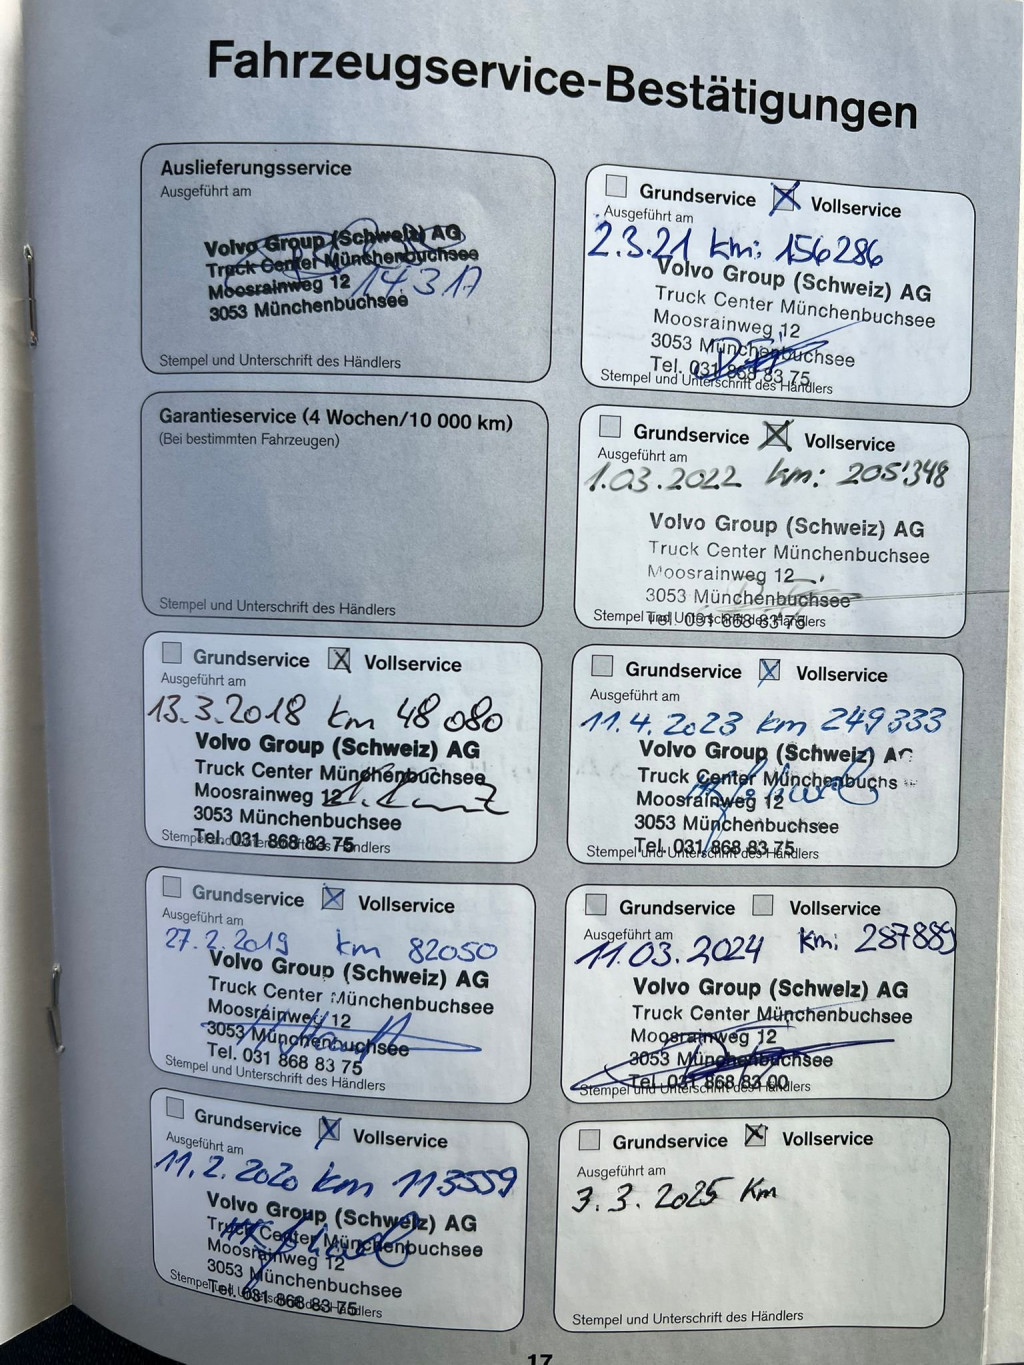 Fahrzeugservice-Bestätigungen
Auslieferungsservice
Ausgeführt am
Volvo Group (Schweiz) AG
Truck Center Münchenbuchsee
Moosrainweg 12
14.3.17
3053 Münchenbuchsee
Stempel und Unterschrift des Händlers
Garantieservice (4 Wochen/10 000 km)
(Bei bestimmten Fahrzeugen)
Stempel und Unterschrift des Händlers
Grundservice Vollservice
Ausgeführt am
13.3.2018 km 48080
Volvo Group (Schweiz) AG
Truck Center Münchenbuchsee
Moosrainweg 12
3053 Münchenbuchsee
Tel. 031 868 83 75
Stempel und Unterschrift des Händlers
Grundservice Vollservice
Ausgeführt am
27.2.2019 km 82050
Volvo Group (Schweiz) AG
Truck Center Münchenbuchsee
Moosrainweg 12
3053 Münchenbuchsee
Tel. 031 868 83 75
Stempel und Unterschrift des Händlers
Grundservice Vollservice
Ausgeführt am
11.2.2020 km 113559
Volvo Group (Schweiz) AG
Truck Center Münchenbuchsee
Moosrainweg 12
3053 Münchenbuchsee
Tel. 031 868 83 75
Stempel und Unterschrift des Händlers
Grundservice Vollservice
Ausgeführt am
2.3.21 km: 156286
Volvo Group (Schweiz) AG
Truck Center Münchenbuchsee
Moosrainweg 12
3053 Münchenbuchsee
Tel. 031 868 83 75
Stempel und Unterschrift des Händlers
Grundservice Vollservice
Ausgeführt am
1.03.2022 km: 205'348
Volvo Group (Schweiz) AG
Truck Center Münchenbuchsee
Moosrainweg 12
3053 Münchenbuchsee
Tel. 031 868 83 75
Stempel und Unterschrift des Händlers
Grundservice Vollservice
Ausgeführt am
11.4.2023 km 249333
Volvo Group (Schweiz) AG
Truck Center Münchenbuchs
Moosrainweg 12
3053 Münchenbuchsee
Tel. 031 868 83 75
Stempel und Unterschrift des Händlers
Grundservice Vollservice
Ausgeführt am
11.03.2024 km: 287889
Volvo Group (Schweiz) AG
Truck Center Münchenbuchsee
Moosrainweg 12
3053 Münchenbuchsee
Tel. 031 868 83 00
Stempel und Unterschrift des Händlers
Grundservice Vollservice
Ausgeführt am
3.3.2025 Km
Stempel und Unterschrift des Händlers
17